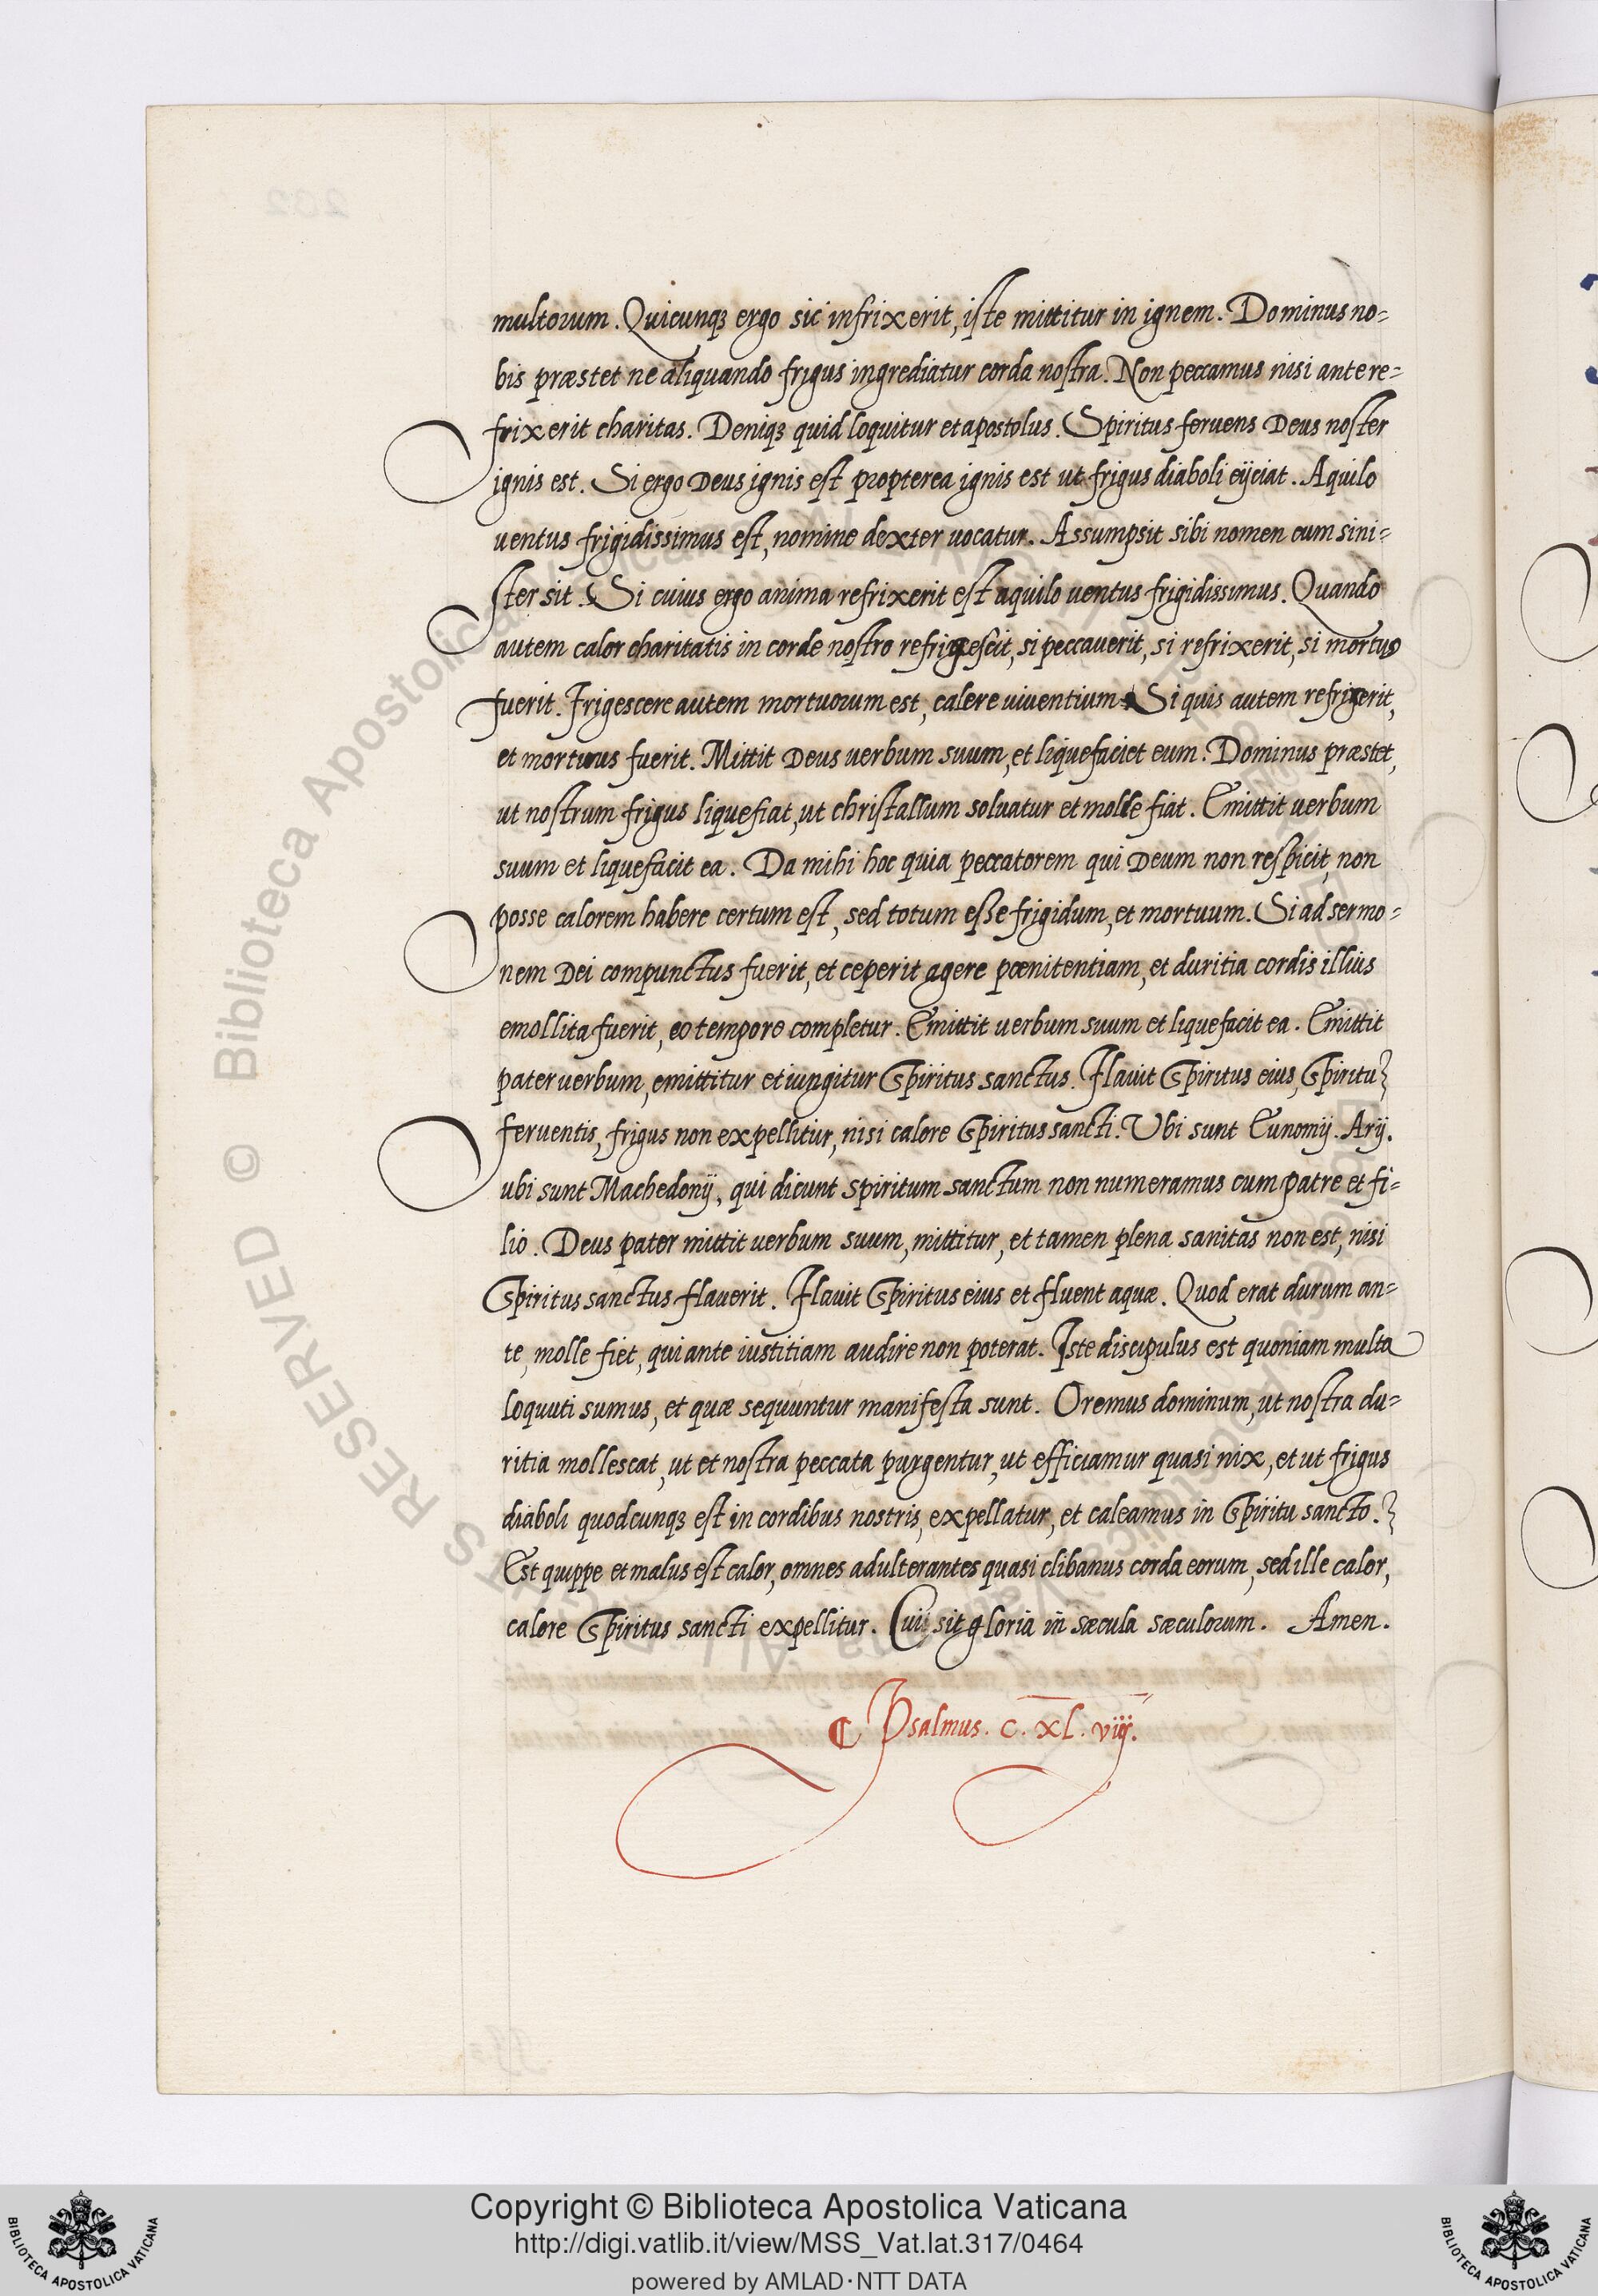 multorum. Quicunqꝫ ergo sic infrixerit, iste mittitur in ignem. Dominus no=
bis præstet ne aliquando frigus ingrediatur corda nostra. Non peccamus nisi ante re=
frixerit charitas. Deniqꝫ quid loquitur et apostolus. Spiritus feruens Deus noster
ignis est. Si ergo Deus ignis est propterea ignis est ut frigus diaboli eijciat. Aquilo
uentus frigidissimus est, nomine dexter uocatur. Assumpsit sibi nomen cum sini=
ster sit. Si cuius ergo anima refrixerit est aquilo uentus frigidissimus. Quando
autem calor charitatis in corde nostro refrigescit, si peccauerit, si refrixerit, si mortuus
fuerit. Frigescere autem mortuorum est, calere uiuentium. Si quis autem refrigerit,
et mortuus fuerit. Mittit Deus uerbum suum, et liquefaciet eum. Dominus præstet,
ut nostrum frigus liquefiat, ut christallum soluatur et molle fiat. Emittit uerbum
suum et liquefacit ea. Da mihi hoc quia peccatorem qui Deum non respicit, non
posse calorem habere certum est, sed totum esse frigidum, et mortuum. Si ad sermo=
nem Dei compunctus fuerit, et ceperit agere pœnitentiam, et duritia cordis illius
emollita fuerit, eo tempore completur. Emittit uerbum suum et liquefacit ea. Emittit
pater uerbum, emittitur et iungitur Spiritus sanctus. Flauit Spiritus eius, Spiritu
feruentis, frigus non expellitur, nisi calore Spiritus sancti. Ubi sunt Eunomij. Arij.
ubi sunt Machedonij, qui dicunt spiritum sanctum non numeramus cum patre et fi=
lio. Deus pater mittit uerbum suum, mittitur, et tamen plena sanitas non est, nisi
Spiritus sanctus flauerit. Flauit Spiritus eius et fluent aquæ. Quod erat durum an=
te, molle fiet, qui ante iustitiam audire non poterat. Iste discipulus est quoniam multa
loquuti sumus, et quæ sequuntur manifesta sunt. Oremus dominum, ut nostra du=
ritia mollescat, ut et nostra peccata purgentur, ut efficiamur quasi nix, et ut frigus
diaboli quodcunqꝫ est in cordibus nostris, expellatur, et caleamus in Spiritu sancto.
Est quippe et malus est calor, omnes adulterantes quasi clibanus corda eorum, sed ille calor,
calore Spiritus sancti expellitur. Cui sit gloria in sæcula sæculorum. Amen.
¶ Psalmus. c. xl. viij.
© Biblioteca Apostolica Vaticana ALL RIGHTS RESERVED
Copyright © Biblioteca Apostolica Vaticana
http://digi.vatlib.it/view/MSS_Vat.lat.317/0464
powered by AMLAD·NTT DATA
BIBLIOTECA APOSTOLICA VATICANA
BIBLIOTECA APOSTOLICA VATICANA